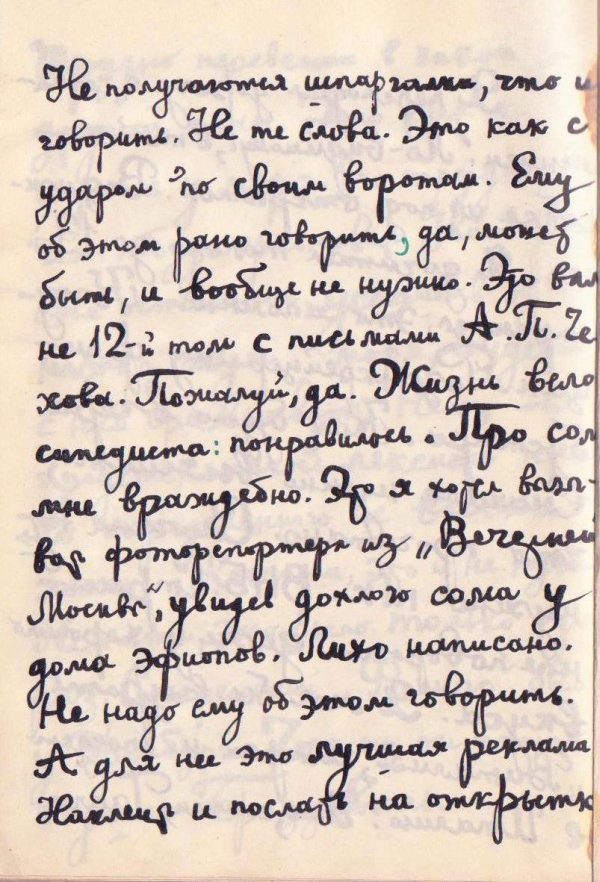 Не получаются шпаргалки, что и
говорить. Не те слова. Это как с
ударом по своим воротам. Ему
об этом рано говорить, да, может
быть, и вообще не нужно. Это вам
не 12-й том с письмами А.П.Че
хова. Пожалуй, да. Жизнь вело
сипедиста: понравилось. Про сом
мне враждебно. Это я хотел
фоторепортера из „Вечерней
Москвы", увидев дохлого сома у
дома эфиопов. Лихо написано.
Не надо ему об этом говорить.
А для нее это лучшая реклама
Наклеить и послать на открытк